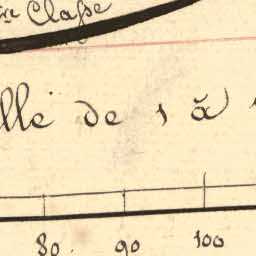 re Classe
lle de 1 à
80. 90 100